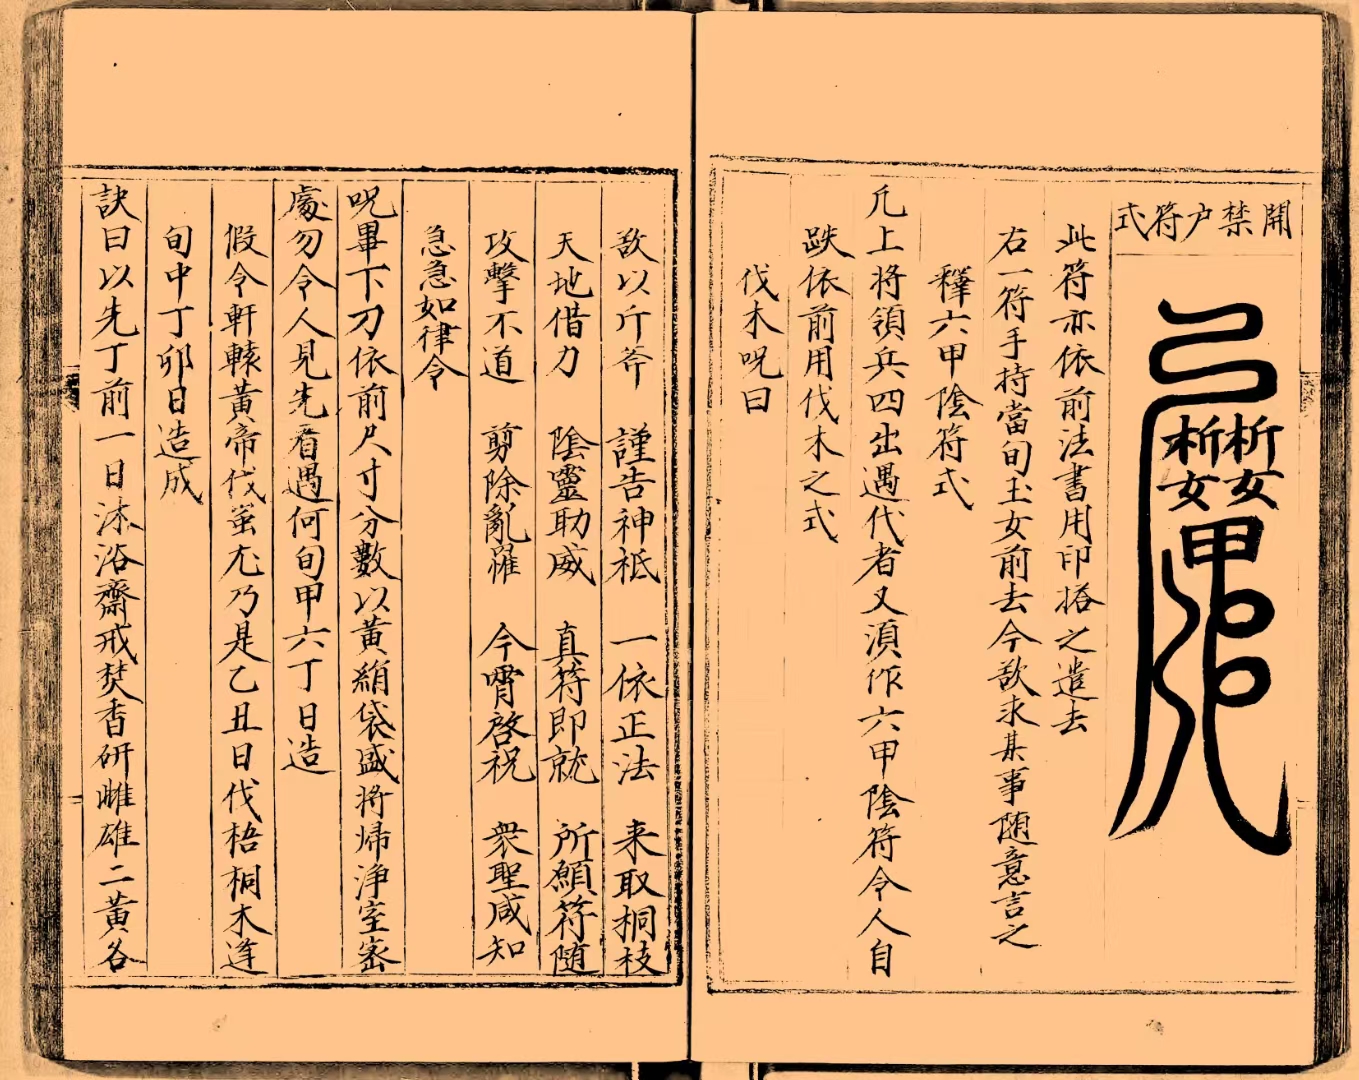 開禁户符式
斬女斬女甲
此符亦依前法書用印搭之遣去
右一符手持當旬玉女前去今欲求某事随意言之
釋六甲陰符式
凡上将領兵四出遇代者又湏作六甲陰符令人自
跌依前用伐木之式
伐木呪曰
敌以斤斧 謹告神祇 一依正法 来取桐枝
天地借力 陰靈助威 真符即就 所願符随
攻擊不道 剪除亂 今霄啓祝 衆聖咸知
急急如律令
呪畢下刀依前尺寸分數以黄絹袋盛将帰浄室宻
處勿令人見先看遇何旬甲六丁日造
假令軒轅黄帝伐蚩尤乃是乙丑日伐梧桐木逢
旬中丁卯日造成
訣曰以先丁前一日沐浴齋戒焚香研雌雄二黄各